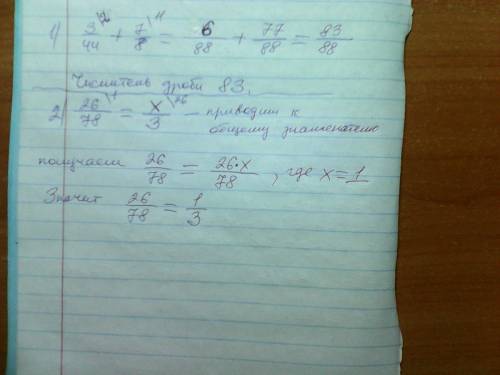 1) 3/44 \2 + 7/8 \11 = 6/88 + 77/88 = 83/88
Числитель дроби 83.
2) 26/78 \1 = x/3 \26 — приводим к
общему знаменателю
получаем 26/78 = 26·x/78, где x=1
Значит 26/78 = 1/3